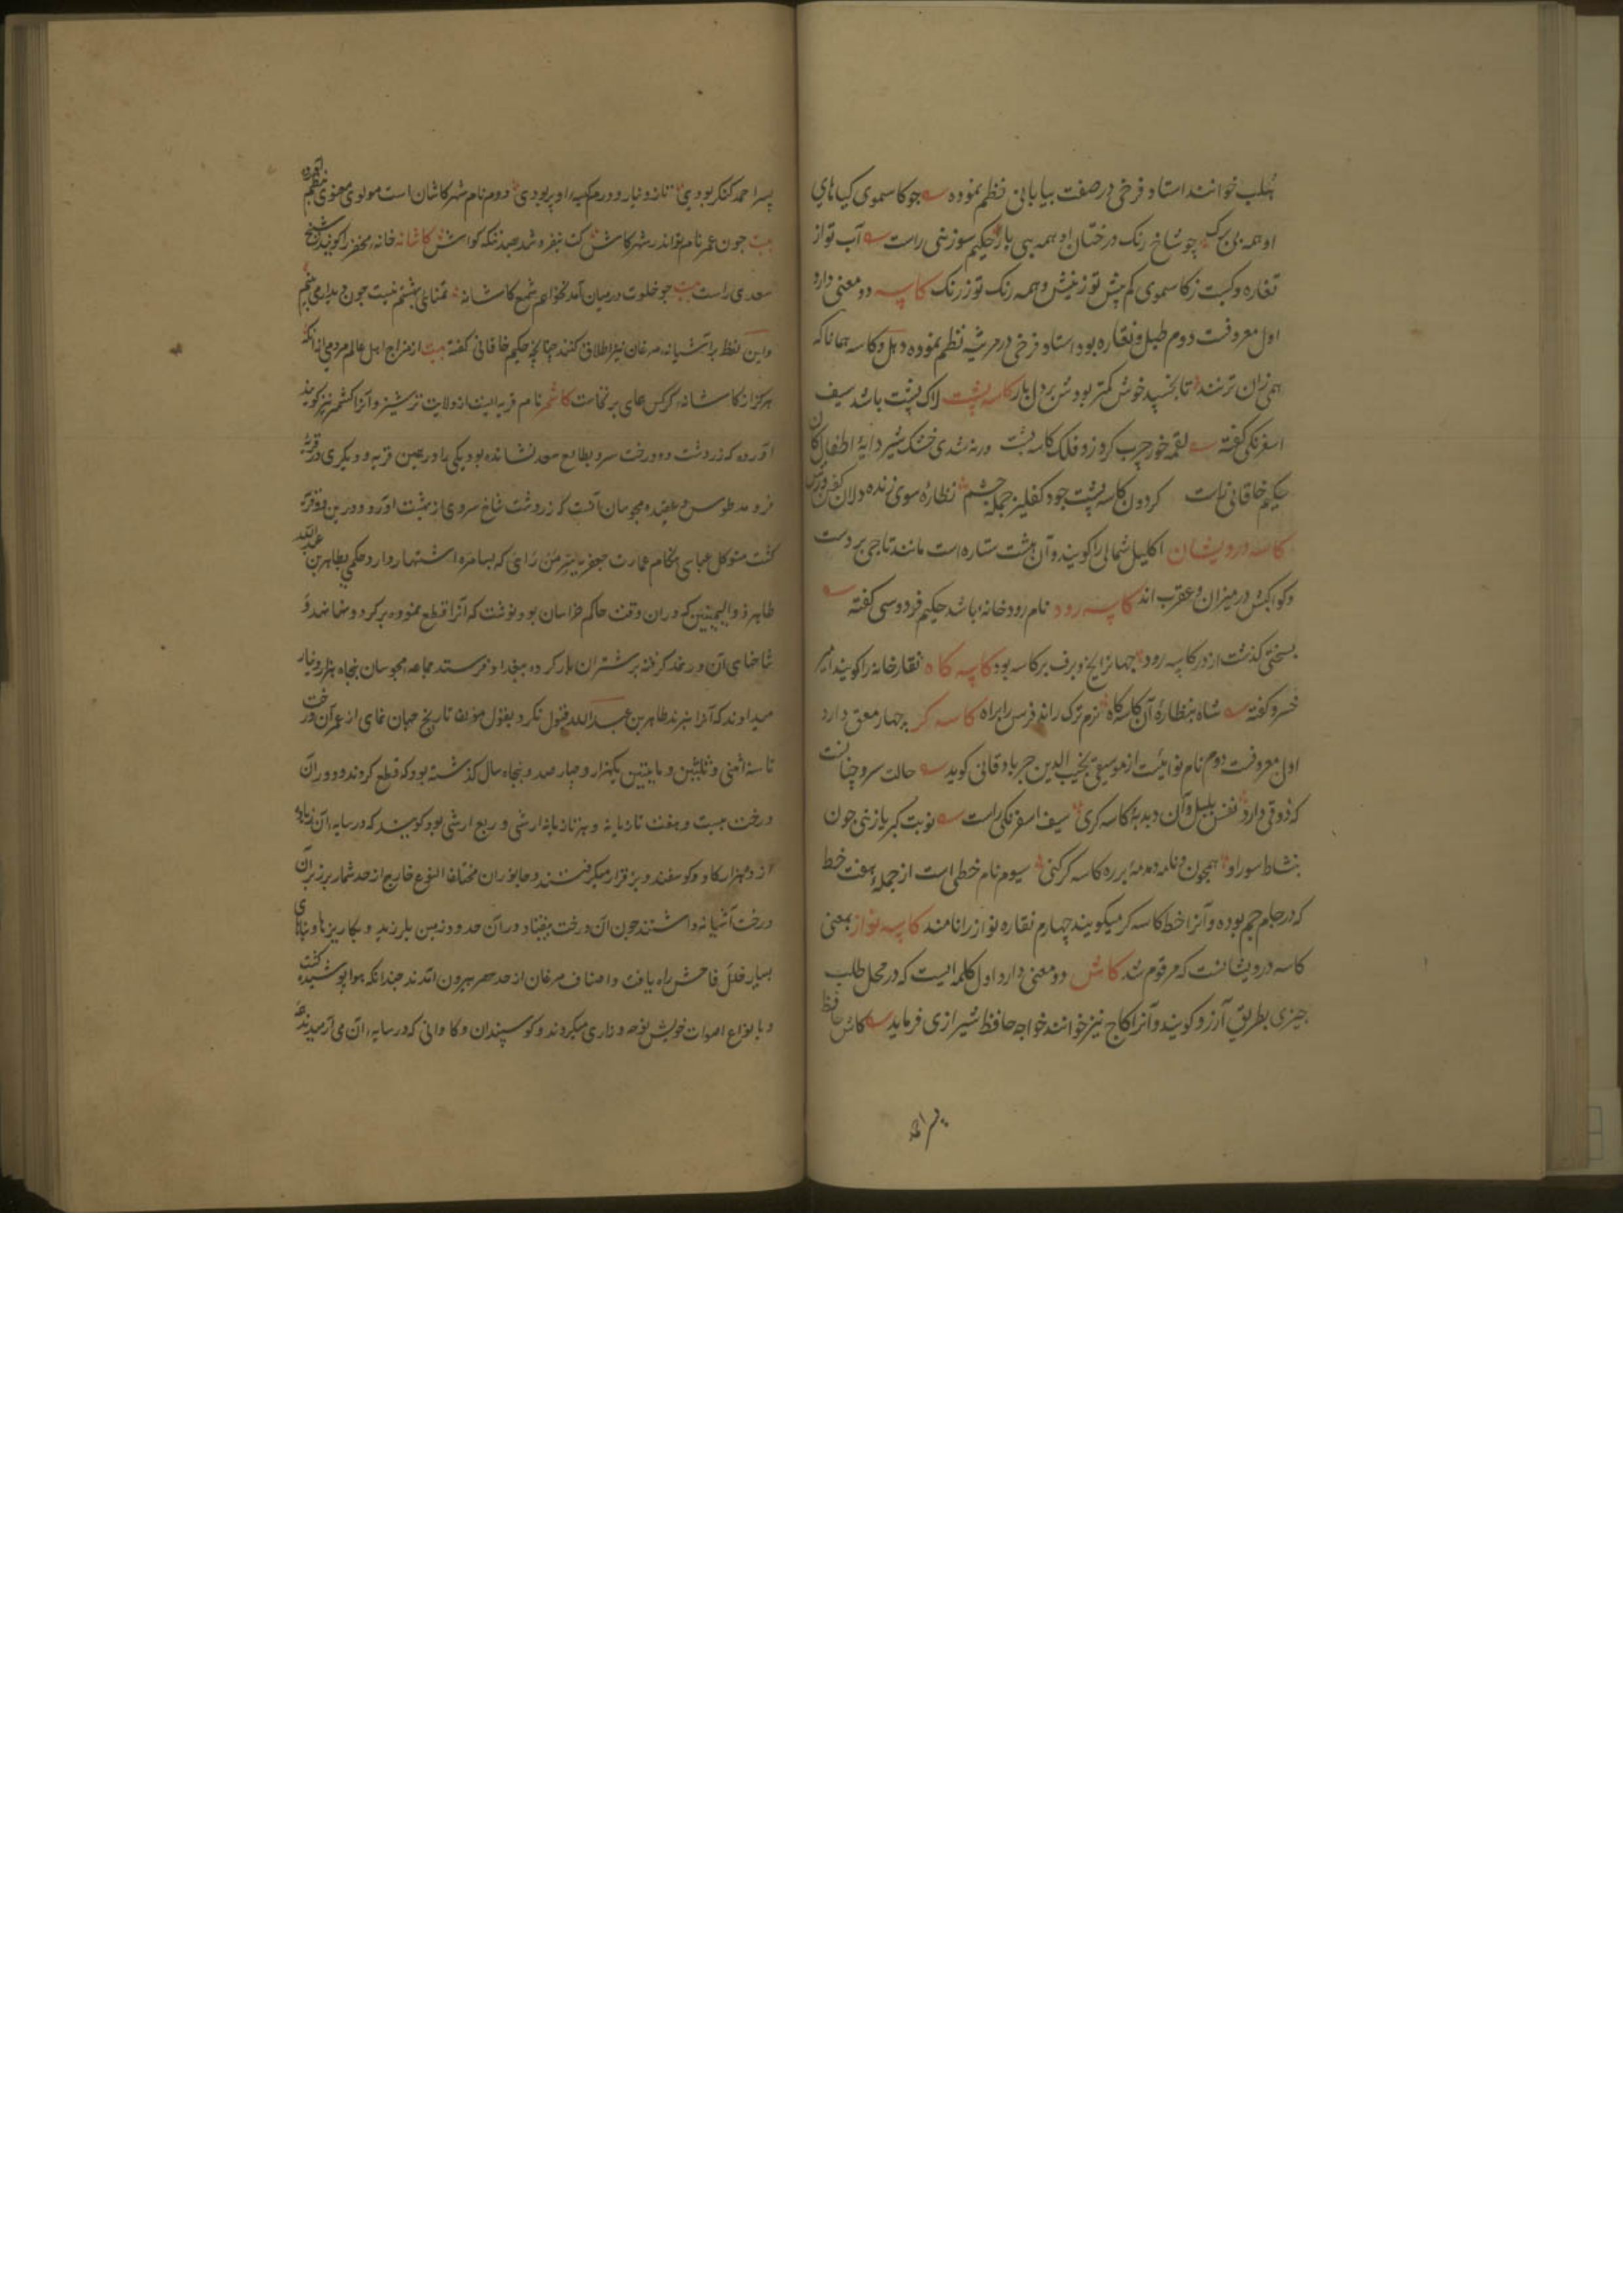 ثعلب خوانند استاد فرخی در صفت بیابانی نظم نموده جو کاسموی کیاهای
او همه بی برک چو شاخ رنک درختان او همه بی بار حکیم سوزنی راست آب تو از
تغاره و کبت ز کاسموی کم پیش تو ز نیش و همه رنک تو ز رنک کاسه دو معنی دارد
اول معروفست دوم طبل و نقاره بود استاد فرخی در مرثیه نظم نموده دهل و کاسه همانا که
همی زان نزنند تا بخسپد خوش کمتر بودش بر دل بار کاسه پشت لاک پشت باشد سیف
اسفرنکی گفته لقمه خور چرب کرد زو فلک کاسه پشت ورنه شدی خشک شیر دایهٔ اطفال کان
حکیم خاقانی راست کردون کاسه پشت جو کفلیز جمله چشم نظاره سوی زنده دلان
کاسه درویشان اکلیل شمالی را کویند و آن هشت ستاره است مانند تاجی بر دست
و کواکبش در میزان و عقرب اند کاسه رود نام رودخانه باشد حکیم فردوسی گفته
بسختی گذشت از در کاسه رود جهان را یخ و برف بر کاسه بود کاسه کاه نقارخانه را کویند امیر
خسرو گفته شاه بنظارهٔ آن کاسه کاه نزم ترک راند فرس را براه کاسه کر چهار معنی دارد
اول معروفست دوم نام نوائیست از موسیقی نجیب الدین جربادقانی کوید حالت سرو چنانست
که ذوقی دارد نفس بلبل و آن دبدبهٔ کاسه کری سیف اسفرنکی راست نوبت کبر باز نی جون
بنشاط سور او همجون و نامه دمدمه بر ره کاسه کر کنی سیوم نام خطی است از جملهٔ هفت خط
که در جام جم بوده و آنرا خط کاسه کر میکویند چهارم نقاره نواز را نامند کاسه نواز بمعنی
کاسه درویشانست که مرقوم شد کاش دو معنی دارد اول کلمه ایست که در محل طلب
جیزی بطریق آرزو کویند و آنرا کاج نیز خوانند خواجه حافظ شیرازی فرماید کاش حافظ
پسر احمد
پسر احمد کنکر بودی تا زو نیارو درم کیه او پر بودی دوم نام شهر کاشان است مولوی معنوی نظم نموده
بیت جون عمر نام تو اندر شهر کاش کس بنفروشد بصد دنکه لواش کاشانه خانه مختصر را کویند شیخ
سعدی راست بیت جو خلوت در میان آمد نخواهم شمع کاشانه تمنای بهشتم نیست جون دیدار می بینم
و این لفظ بر آشیانه مرغان نیز اطلاق کنند چنانچه حکیم خاقانی کفته بیت از مزاج اهل عالم مردمی از آنکه
هرکز از کاشانه کرکس همای برنخاست کاشمر نام قریه ایست از ولایت ترشیز و آنرا کشمر نیز کویند
آورده که زردشت دو درخت سرو بطالع سعد نشانده بود یکی را در همین قریه و دیکری در قریهٔ
فرومد طوس و عقیده مجوسان آنست که زردشت شاخ سروی از بهشت آورد و درین دو قریه
کشت متوکل عباسی هنکام عمارت جعفریه سر من رای که بسامره اشتهار دارد حکمی بطاهر بن عبدالله
طاهر ذوالیمینین که دران وقت حاکم خراسان بود نوشت که آنرا قطع نموده بر کردونها نهد و
شاخهای آن در نمد گرفته بر شتران بار کرده ببغداد فرستد جماعه مجوسان پنجاه هزار دینار
میدادند که آنرا نبرند طاهر بن عبدالله قبول نکرد بقول مولف تاریخ جهان نمای از عمر آن درخت
تا سنه اثنی و ثلثین و مایتین یکهزار و چهار صد و پنجاه سال گذشته بود که قطع کردند و دور آن
درخت بیست و هفت تازیانه و هر تازیانه ارشی و ربع ارشی بود کویند که در سایه آن زیاده
از دو هزار کاو و کوسفند و بز قرار میکرفتند و جانوران مختلف النوع خارج از حد شمار بر زبر آن
درخت آشیانه داشتند جون آن درخت بیفتاد در آن حدود زمین بلرزید و بکاریزها و بناهای
بسیار خلل فاحش راه یافت و اصناف مرغان از حد حصر بیرون آمدند چندانکه هوا پوشیده کشت
و بانواع اصوات خویش نوحه و زاری میکردند و کوسپندان و کاوانی که در سایه آن می آرمیدند